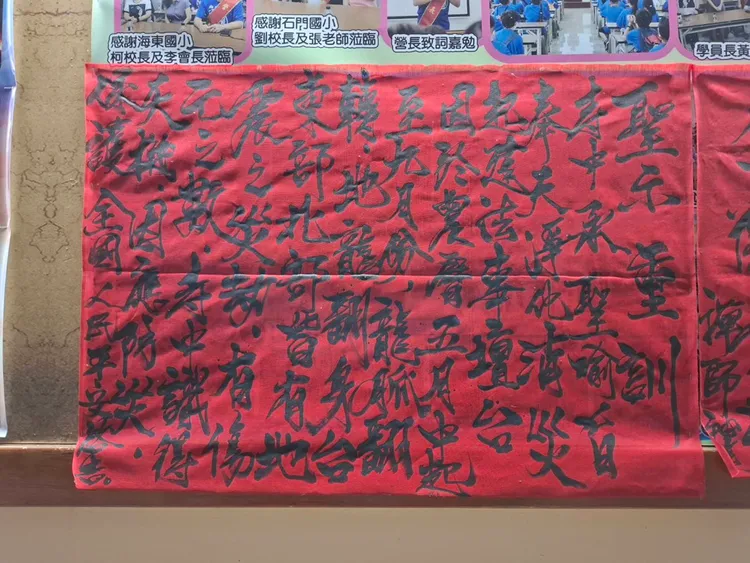 感謝海東國小
柯校長及李會長蒞臨
感謝石門國小
劉校長及張老師蒞臨
營長致詞嘉勉
學員長黃
聖示 重訓
寺中承聖喻有
奉天淨化消災
起護法奉壇台
因於農曆五月中起
至九月份.龍脈翻
轉.地龍翻身.台
東部北部皆有地
震之災劫.有傷
元之數.寺中識得
天機.因應防災.
保護全國人民平安
禪師